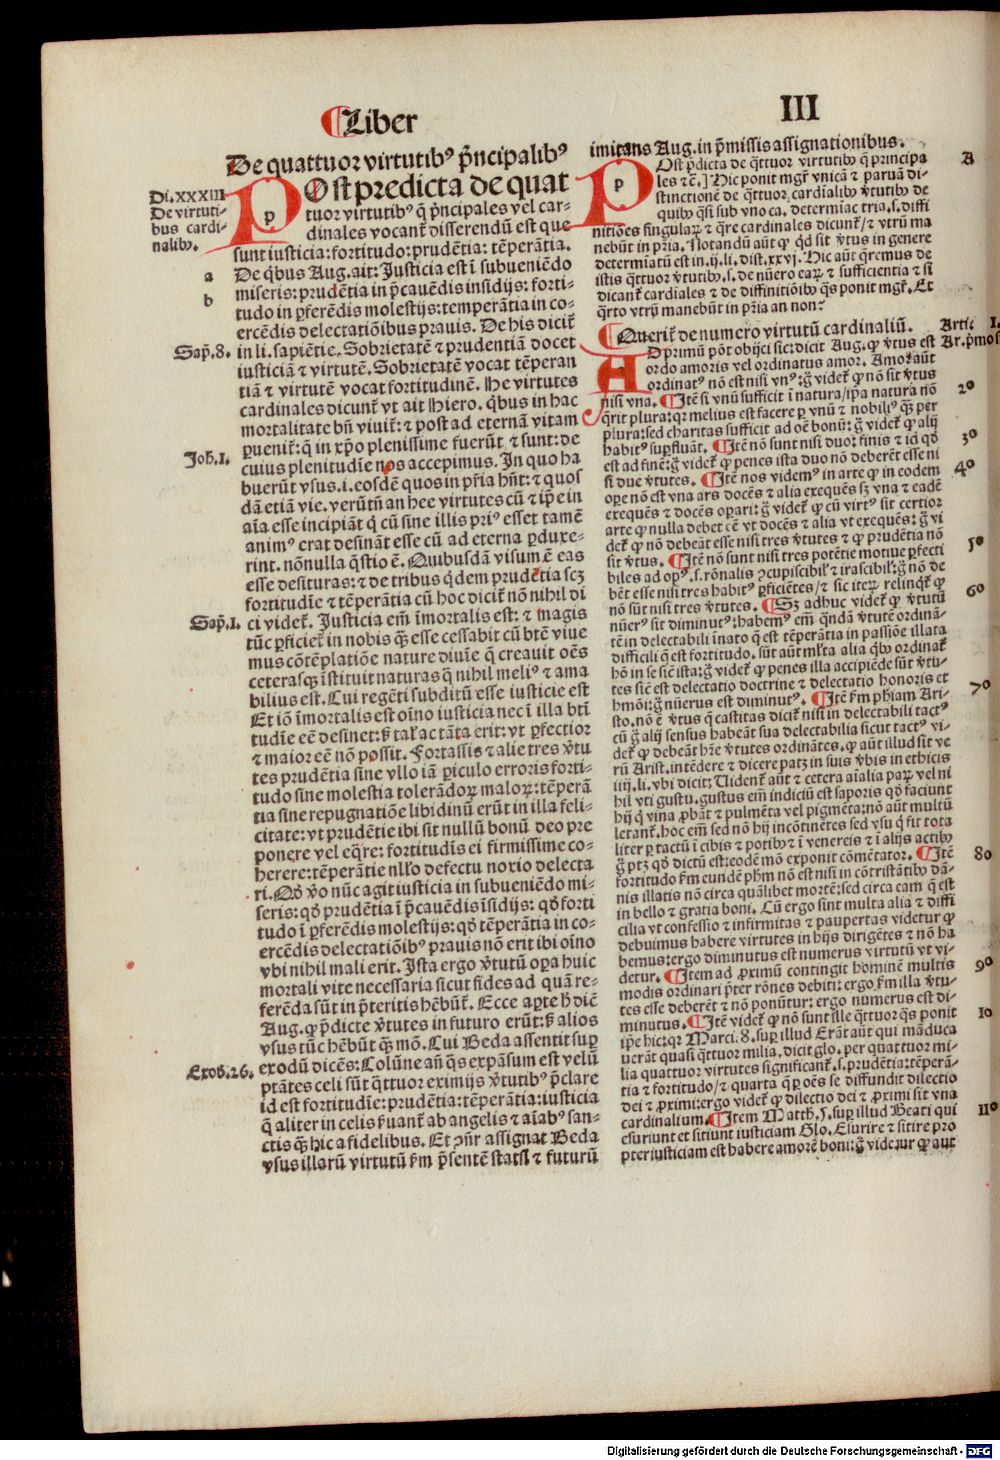 ¶Liber
III
De quattuor virtutibꝰ p̄ncipalibꝰ
Di. XXXIII
De virtuti-
bus cardi-
nalibꝰ.
POst predicta de quat
tuor virtutibꝰ q̄ p̄ncipales vel car-
dinales vocant̄ disserendū est que
sunt iusticia: fortitudo: prudētia: tēperātia.
a
De qͥbus Aug. ait: Justicia est ī subueniēdo
b
miseris: prudētia in p̄cauēdis insidijs: forti-
tudo in ꝑferēdis molestijs: temperātia in co-
ercēdis delectatiōibus prauis. De his dicit̄
Sap̄. 8.
in li. sapiētie. Sobrietatē ⁊ prudentiā docet
iusticiā ⁊ virtutē. Sobrietatē vocat tēperan
tiā ⁊ virtutē vocat fortitudinē. He virtutes
cardinales dicunt̄ vt ait Hiero. qͥbus in hac
mortalitate bn̄ viuit̄: ⁊ post ad eternā vitam
ꝑuenit̄: q̄ in xp̄o plenissime fuerūt ⁊ sunt: de
Joh. 1.
cuius plenitudīe nos accepimus. In quo ha
buerūt vsus .i. eosdē quos in pr̄ia hn̄t: ⁊ quos
dā etiā vie. verūtn̄ an hee virtutes cū ⁊ ip̄e in
aīa esse incipiāt q̄ cū sine illis priꝰ esset tamē
animꝰ erat desināt esse cū ad eterna ꝑduxe-
rint. nōnulla q̄stio ē. Quibusdā visum ē eas
esse desituras: ⁊ de tribus qͥdem prudētia scꝫ
fortitudīe ⁊ tēperātia cū hoc dicit̄ nō nihil di
Sap̄. 1.
ci videt̄. Justicia em̄ īmortalis est: ⁊ magis
tūc ꝑficiet̄ in nobis qꝫ̄ esse cessabit cū btē viue
mus cōtēplatiōe nature diuīe q̄ creauit oēs
ceterasqꝫ īstituit naturas q̄ nihil meliꝰ ⁊ ama
bilius est. Cui regēti subditū esse iusticie est
Et iō īmortalis est oīno iusticia nec ī illa btī
tudīe eē desinet: sꝫ talꝰ ac tāta erit: vt ꝑfectior
⁊ maior eē nō possit. Fortassis ⁊ alie tres v̄tu
tes prudētia sine vllo iā ꝑiculo erroris forti-
tudo sine molestia tolerādoꝝ maloꝝ: tēperā
tia sine repugnatiōe libidinū erūt in illa feli-
citate: vt prudētie ibi sit nullū bonū deo pre
ponere vel eq̄re: fortitudīs ei firmissime co-
herere: tēperātie nll̄o defectu noxio delecta
ri. Qḋ v̄o nūc agit iusticia in subueniēdo mi-
seris: qḋ prudētia ī p̄cauēdis īsidijs: qḋ forti
tudo ī ꝑferēdis molestijs: qḋ tēperātia in co-
ercēdis delectatiōibꝰ prauis nō erit ibi oīno
vbi nihil mali erit. Ista ergo v̄tutū oꝑa huic
mortali vite necessaria sicut fides ad quā re-
ferēda sūt in p̄teritis hēbūt̄. Ecce aꝑte h̄ diē
Aug. ꝙ p̄dicte v̄tutes in futuro erūt: sꝫ alios
vsus tūc hēbūt qꝫ̄ mō. Cui Beda assentit suꝑ
Exod. 26.
exodū dicēs: Colūne an̄ q̄s expāsum est velū
ptātes celi sūt q̄ttuor eximijs v̄tutibꝰ p̄clare
id est fortitudīe: prudētia: tēperātia: iusticia
q̄ aliter in celis ẜuant̄ ab angelis ⁊ aīabꝰ san-
ctis qꝫ̄ hic a fidelibus. Et ꝯn̄r assignat Beda
vsus illarū virtutū ẜm p̄sentē statū ⁊ futurū
imitans Aug. in p̄missis assignationibus.
A
POst p̄dicta de q̄ttuor virtutibꝰ q̄ principa
les ⁊c̄.] Hic ponit mgr̄ vnicā ⁊ paruā di-
stinctionē de q̄ttuor cardīalibꝰ v̄tutibꝰ de
quibꝰ q̄si sub vno ca. determīac tria. s. diffi
nitiōes singulaꝝ ⁊ q̄re cardinales dicunt̄/ ⁊ vtrū ma
nebūt in pr̄ia. Notandū aūt ꝙ qͥd sit v̄tus in genere
determīatū est in .ij. li. dist. xxvj. Hic aūt q̄remus de
istis q̄ttuor v̄tutibꝰ. s. de nūero eaꝝ ⁊ sufficientia ⁊ si
dicant̄ cardiales ⁊ de diffinitiōibꝰ q̄s ponit mgr̄. Et
q̄rto vtrū manebūt in pr̄ia an non?
¶Querit̄ de numero virtutū cardinaliū.
Arti. 1.
Ar. pmos
AD primū pōt obijci sic: dicit Aug. ꝙ v̄tus est
ordo amoris vel ordinatus amor. Amor aūt
ordinatꝰ nō est nisi vnꝰ: g̊ videt̄ ꝙ nō sit v̄tus
2º
nisi vna. ¶Itē si vnū sufficit ī natura/ ip̄a natura nō
q̄rit plura: qꝛ melius est facere ꝑ vnū ⁊ nobiliꝰ qꝫ̄ per
plura: sed charitas sufficit ad oē bonū: g̊ videt̄ ꝙ alij
3º
habitꝰ suꝑfluāt. ¶Itē nō sunt nisi duo: finis ⁊ id qḋ
est ad finē: g̊ videt̄ ꝙ penes ista duo nō deberēt esse ni
4º
si due v̄tutes. ¶Itē nos videmꝰ in arte ꝙ in eodem
oꝑe nō est vna ars docēs ⁊ alia exequēs sꝫ vna ⁊ eadē
exequēs ⁊ docēs oꝑari: g̊ videt̄ ꝙ cū virtꝰ sit certior
arte ꝙ nulla debet eē vt docēs ⁊ alia vt exequēs: g̊ vi
det̄ ꝙ nō debeāt esse nisi tres v̄tutes ⁊ ꝙ prudētia nō
5º
sit v̄tus. ¶Itē nō sunt nisi tres potētie motiue ꝑfecti
biles ad opꝰ .s. rōnalis ꝯcupiscibil̄ ⁊ irascibil̄: g̊ nō de
bēt esse nisi tres habitꝰ ꝑficiētes/ ⁊ sic iteꝝ relinqͥt̄ ꝙ
6º
nō sūt nisi tres v̄tutes. ¶Sꝫ adhuc videt̄ ꝙ v̄tutū
nūerꝰ sit diminutꝰ: habemꝰ em̄ qͥndā v̄tutē ordinā-
tē in delectabili īnato q̄ est tēperātia in passiōe illata
difficili q̄ est fortitudo. sūt aūt ml̄ta alia qͥbꝰ ordinat̄
hō in se siē ista: g̊ videt̄ ꝙ penes illa accipiēde sūt v̄tu-
tes siē est delectatio doctrine ⁊ delectatio honoris et
7º
hmōi: g̊ nūerus est diminutꝰ. ¶Itē ẜm ph̄iam Ari-
sto. nō ē v̄tus q̄ castitas dicit̄ nisi in delectabili tactꝰ
cū g̊ alij sensus habeāt sua delectabilia sicut tactꝰ vi-
det̄ ꝙ debeāt hr̄e v̄tutes ordinātes. ꝙ aūt illud sit ve
rū Arist. intēdere ⁊ dicere patꝫ in suis v̄bis in ethicis
iiij. li. vbi dicit: Uident̄ aūt ⁊ cetera aīalia paꝝ vel ni
hil vti gustu. gustus em̄ indiciū est saporis qḋ faciunt
hij q̄ vina ꝓbāt ⁊ pulmēta vel pigmēta: nō aūt multū
letant̄. hoc em̄ sed nō hij incōtinētes sed vsu q̄ fit tota
liter ꝑ tactū ī cibis ⁊ potibꝰ ⁊ ī venereis ⁊ ī alijs actibꝰ
8º
g̊ ptꝫ qḋ dictū est: eodē mō exponit cōmētator. ¶Itē
fortitudo ẜm eundē ph̄m nō est nisi in cōtristātibꝰ dā-
nis illatis nō circa quālibet mortē: sed circa eam q̄ est
in bello ⁊ gratia boni. Cū ergo sint multa alia ⁊ diffi
cilia vt confessio ⁊ infirmitas ⁊ paupertas videtur ꝙ
debuimus habere virtutes in hijs dirigētes ⁊ nō ha
bemus: ergo diminutus est numerus virtutū vt vi-
9º
detur. ¶Item ad ꝓximū contingit hominē multis
modis ordinari p̄ter rōnes debiti: ergo ẜm illa v̄tu-
tes esse deberēt ⁊ nō ponūtur: ergo numerus est di-
10
minutus. ¶Itē videt̄ ꝙ nō sunt ille q̄ttuor q̄s ponit
ip̄e hic: qꝛ Marci. 8. suꝑ illud Erāt aūt qui māduca
uerāt quasi q̄ttuor milia. dicit glo. per quattuor mi-
lia quattuor virtutes significant̄ .s. prudētia: tēperā-
tia ⁊ fortitudo/ ⁊ quarta q̄ ꝑ oēs se diffundit dilectio
dei ⁊ ꝓximi: ergo videt̄ ꝙ dilectio dei ⁊ ꝓximi sit vna
11º
cardinalium. ¶Item Matth. 5. suꝑ illud Beati qui
esuriunt et sitiunt iusticiam Glo. Esurire ⁊ sitire pro
pter iusticiam est habere amorē boni: g̊ videtur ꝙ aut
Digitalisierung gefördert durch die Deutsche Forschungsgemeinschaft - DFG